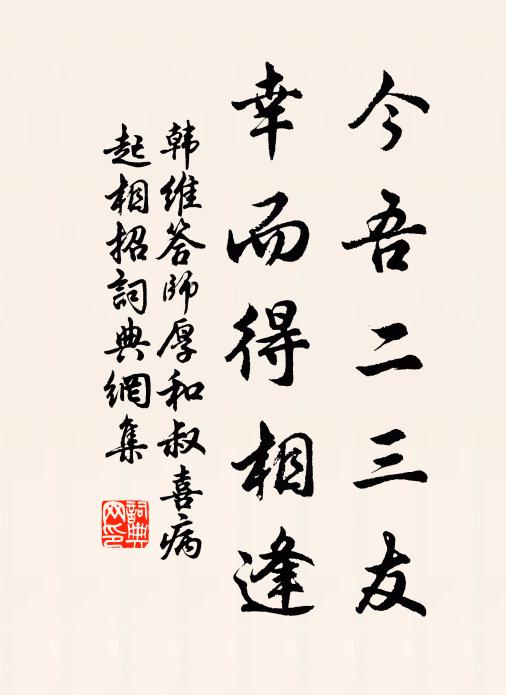 今吾二三友
幸而得相逢
韩维答师厚和叔喜病
起相招詞典網集
詞典
网印